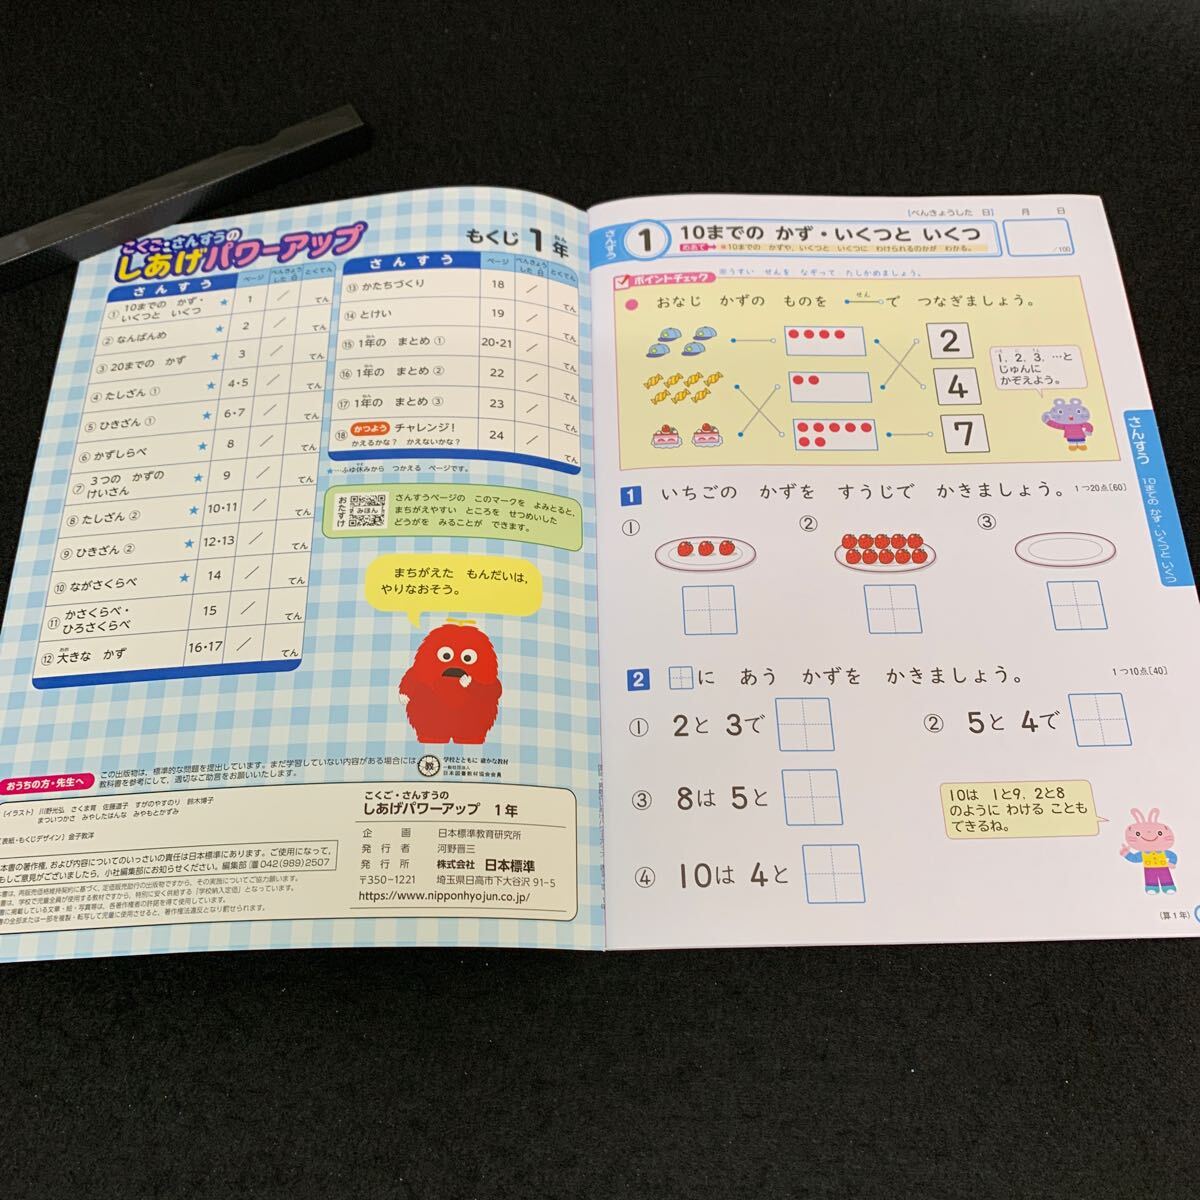 こくご・さんすうの
しあげパワーアップ
もくじ 1年
さんすう ページ べんきょうした日 とくてん
① 10までの かず・いくつと いくつ ★ 1 / てん
② なんばんめ ★ 2 / てん
③ 20までの かず ★ 3 / てん
④ たしざん ① ★ 4・5 / てん
⑤ ひきざん ① ★ 6・7 / てん
⑥ かずしらべ ★ 8 / てん
⑦ 3つの かずの けいさん ★ 9 / てん
⑧ たしざん ② ★ 10・11 / てん
⑨ ひきざん ② ★ 12・13 / てん
⑩ ながさくらべ ★ 14 / てん
⑪ かさくらべ・ひろさくらべ 15 / てん
⑫ 大きな かず 16・17 / てん
さんすう ページ べんきょうした日 とくてん
⑬ かたちづくり 18 / てん
⑭ とけい 19 / てん
⑮ 1年の まとめ ① 20・21 / てん
⑯ 1年の まとめ ② 22 / てん
⑰ 1年の まとめ ③ 23 / てん
⑱ かつよう チャレンジ!
かえるかな? かえないかな? 24 / てん
★…ふゆ休みから つかえる ページです。
おたすけ
みほん
さんすうページの このマークを よみとると、
まちがえやすい ところを せつめいした
どうがを みることが できます。
まちがえた もんだいは、
やりなおそう。
おうちの方・先生へ
この出版物は、標準的な問題を提出しています。まだ学習していない内容がある場合には
教科書を参考にして、適切なご助言をお願いいたします。
教
学校とともに 確かな教材
一般社団法人
日本図書教材協会会員
[イラスト] 川野光弘 さくま育 佐藤道子 すがのやすのり 鈴木博子
まついつかさ みやしたはんな みやもとかずみ
[表紙・もくじデザイン] 金子敦洋
本書の著作権、および内容についてのいっさいの責任は日本標準にあります。ご使用になって、
もしご意見がございましたら、小社編集部にお知らせください。編集部 042(989)2507
こくご・さんすうの
しあげパワーアップ 1年
企画 日本標準教育研究所
発行者 河野晋三
発行所 株式会社 日本標準
〒350-1221 埼玉県日高市下大谷沢 91-5
https://www.nipponhyojun.co.jp/
さんすう
1
10までの かず・いくつと いくつ
めあて→ ※10までの かずや、いくつと いくつに わけられるのかが わかる。
[べんきょうした 日] 月 日
/100
ポイントチェック
※うすい せんを なぞって たしかめましょう。
● おなじ かずの ものを せん で つなぎましょう。
2
4
7
1、2、3、…と
じゅんに
かぞえよう。
さんすう
10までの かず・いくつと いくつ
1 いちごの かずを すうじで かきましょう。 1つ20点[60]
① ② ③
2 に あう かずを かきましょう。 1つ10点[40]
① 2と 3で
② 5と 4で
③ 8は 5と
④ 10は 4と
10は 1と9、2と8
のように わける ことも
できるね。
(算1年)